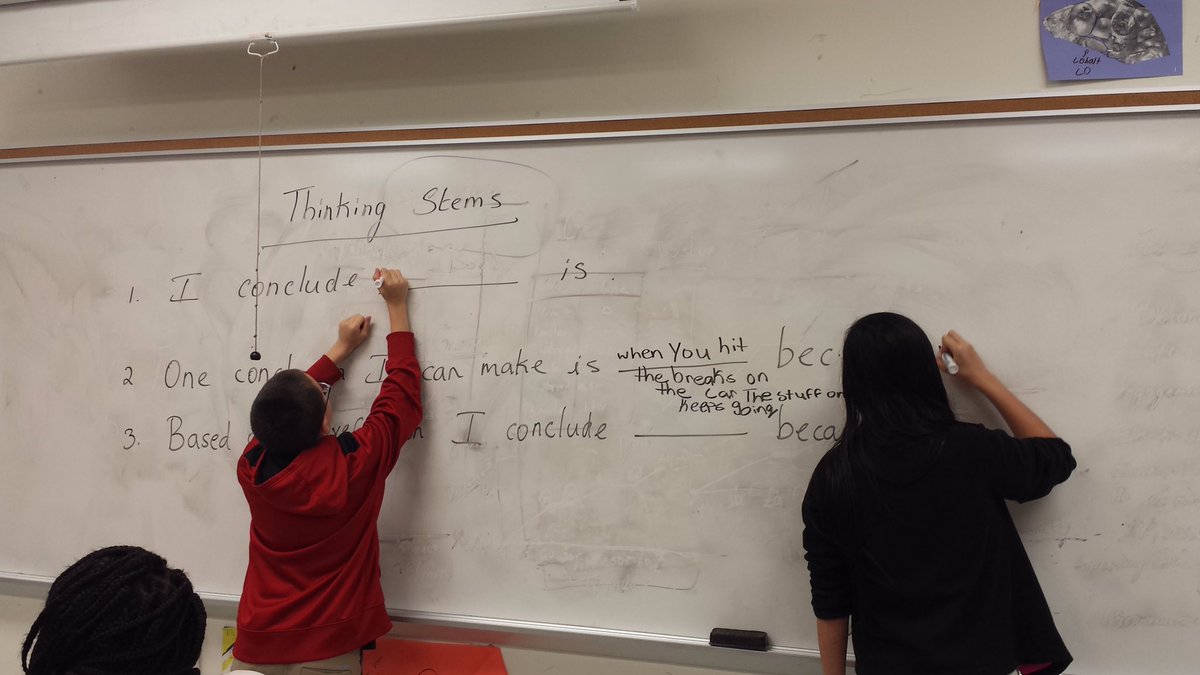 cobalt
CO
Thinking Stems
1. I conclude is.
2 One can make is when You hit bec
the breaks on
the car The stuff on
keeps going
3. Based I conclude beca